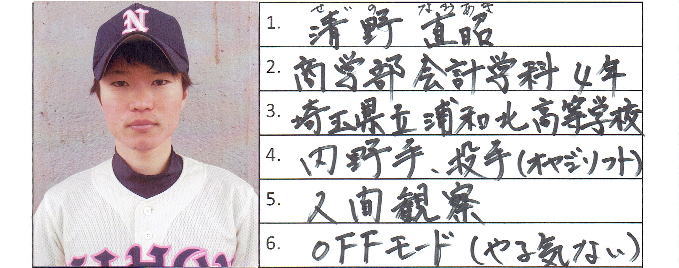 N
NIHON
1. 清野 直昭
せいの なおあき
2. 商学部 会計学科 4年
3. 埼玉県立浦和北高等学校
4. 内野手、投手(オヤジソフト)
5. 人間観察
6. OFFモード(やる気ない)